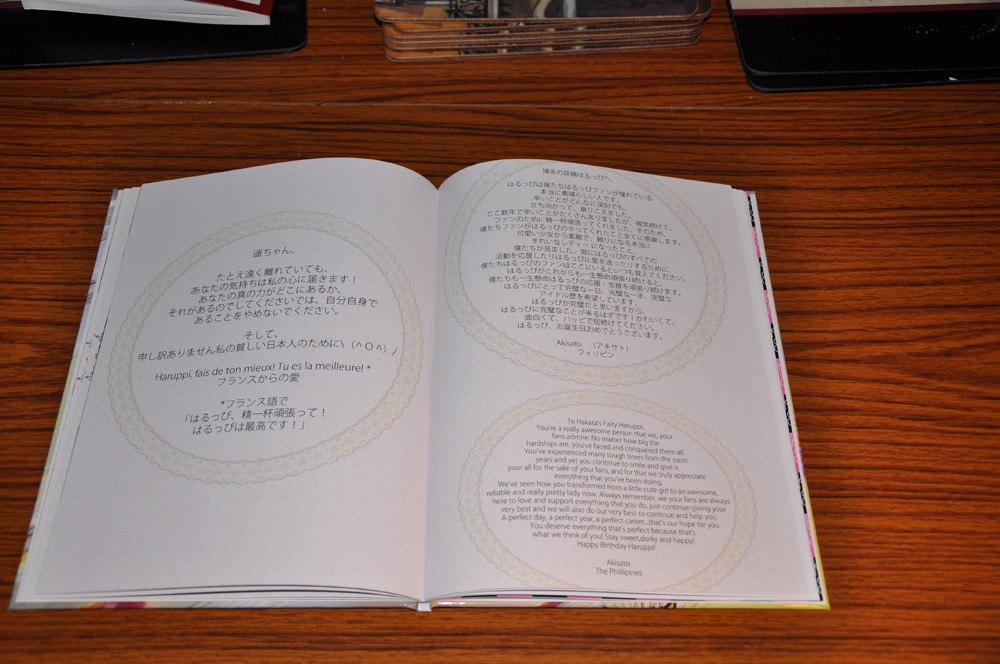 遥ちゃん、
たとえ遠く離れていても、
あなたの気持ちは私の心に届きます！
あなたの真の力がどこにあるか、
それがあるのでしてくださいでは、自分自身で
あることをやめないでください。
そして、
申し訳ありません私の貧しい日本人のために\（^Ｏ^）/
Haruppi, fais de ton mieux! Tu es la meilleure! *
フランスからの愛
*フランス語で
「はるっぴ、精一杯頑張って！
はるっぴは最高です！」
博多の妖精はるっぴへ、
はるっぴは僕たちはるっぴファンが憧れている
本当に素晴らしい人です。
辛いことがどんなに深刻でも、
立ち向かって、乗りこえました。
ここ数年で辛いことがたくさんありましたが、微笑続けて、
ファンのために精一杯頑張ってくれました。そのため、
僕たちファンがはるっぴのやってくれたこと全てに感謝します。
可愛い少女から素敵で、頼りになる本当に
きれいなレディーになったこと
僕たちが見ました。常にはるっぴのすべての
活動を応援したりはるっぴに愛を送ったりするために、
僕たちはるっぴのファンはここにいるといつも覚えてください。
はるっぴがこれからも一生懸命頑張り続けると、
僕たちも一生懸命はるっぴの応援・支援を頑張り続けます。
はるっぴにとって完璧な一日、完璧な一年、完璧な
アイドル歴を希望しています。
はるっぴが完璧だと思いますから、
はるっぴに完璧なことが来るはずです！かわいくて、
面白くて、ハッピで居続けてください。
はるっぴ、お誕生日おめでとうございます。
Akisato （アキサト）
フィリピン
To Hakata's Fairy Haruppi,
You're a really awesome person that we, your
fans admire. No matter how big the
hardships are, you've faced and conquered them all.
You've experienced many tough times from the pasts
years and yet you continue to smile and give it
your all for the sake of your fans, and for that we truly appreciate
everything that you've been doing.
We've seen how you transformed from a little cute girl to an awesome,
reliable and really pretty lady now. Always remember, we your fans are always
here to love and support everything that you do, just continue giving your
very best and we will also do our very best to continue and help you.
A perfect day, a perfect year, a perfect career...that's our hope for you.
You deserve everything that's perfect because that's
what we think of you! Stay sweet,dorky and happy!
Happy Birthday Haruppi!
Akisato
The Phillipines